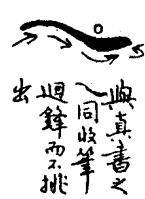 與真書之
乀同收筆
迴鋒而不挑
出